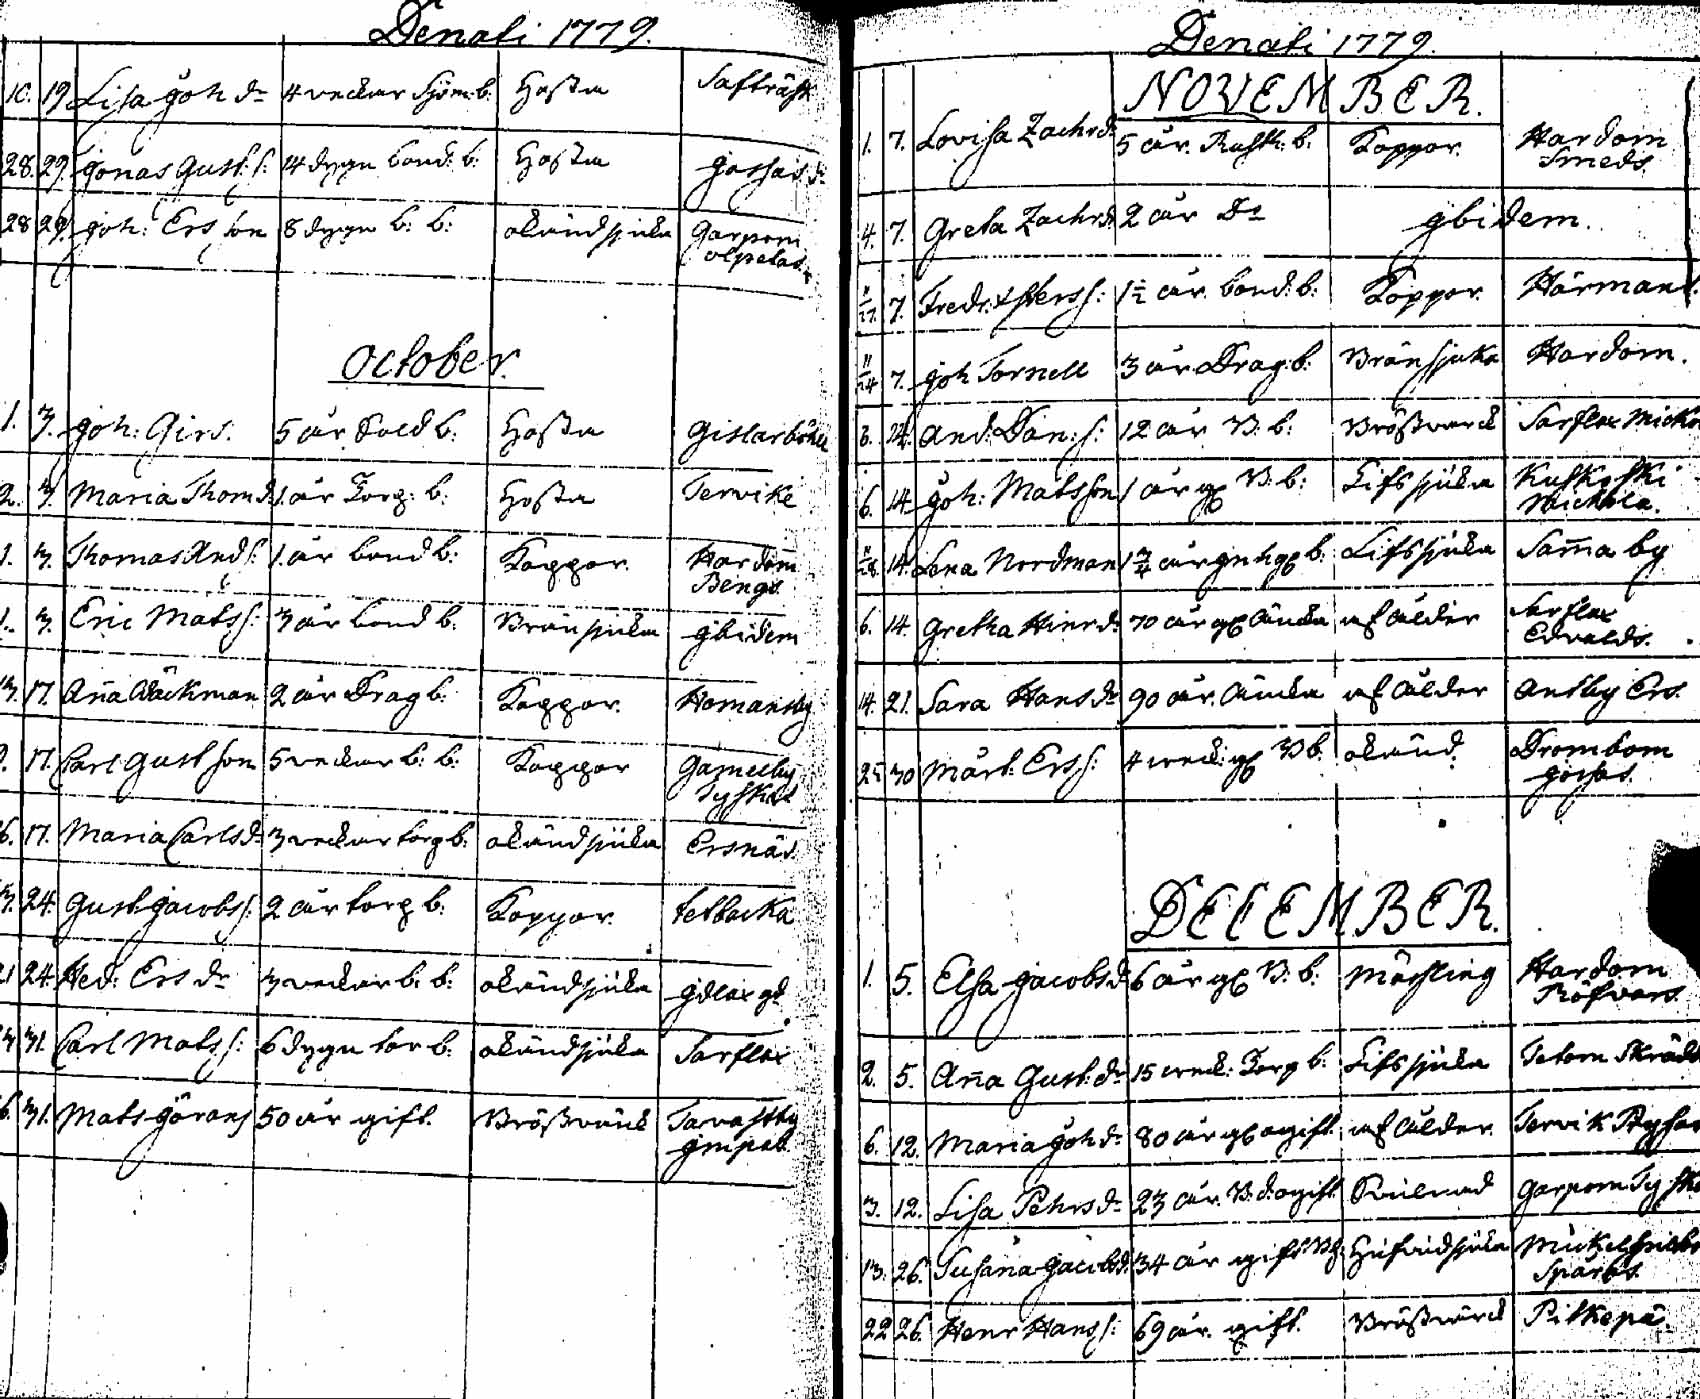 Denati 1779.
10. 19 Lisa Joh dr 4 veckar Sjöm: b: Hosta Safträsk
28. 29. Jonas Gust: s: 14 dygn bond: b: Hosta
28 29. Joh: Ersson 8 dygn b: b: okänd sjuka Garpom
October.
1. 3. Joh: Girs. 5 år Sold b: Hosta Gislarböle
2. 3. Maria Thom d: 1 år Torp: b: Hosta Tervike
1. 3. Thomas And s: 1 år bond b: Koppor. Hardom
Bengs
1. 3. Eric Mats s: 3 år bond b: Brännsjuka Jbidem
17. Aña Wäckman 2 år Drag b: Koppor. Homansby
17. Carl Gustson 5 veckar b: b: Koppor Gammelby
Tyskas
6. 17. Maria Carlsd: 3 veckar torp b: okänd sjuka Ersnäs
24. Gust: Jacobs s: 2 år torp b: Koppor. Tetbacka
21 24. Hed: Ers dr 3 veckar b: b: okänd sjuka
31. Carl Mats s: 6 dygn tor b: okänd sjuka Sarflax
6. 31. Mats Görans 50 år gift. Bröstvärck Tavastby
Denati 1779.
NOVEMBER.
1. 7. Lovisa Zachrd: 5 år. Rusth: b: Koppor. Hardom
Smeds.
4. 7. Greta Zachrd: 2 år Do Jbidem.
7. Fredr: 1 1/2 år bond: b: Koppor. Härmans.
11/24 7. Joh Tornell 3 år Drag: b: Bränsjuka Hardom.
3. 14. And: Dan: s: 12 år B: b: Bröstvärck Sarflax Mickos
6. 14. Joh: Matsson 1 år B: b: Lifssjuka Kuskoski
Mickola.
14. Lena Nordman 1 3/4 år b: Lifssjuka Sam̄a by
6. 14. Gretha Hinrd: 70 år Änka af ålder Sarflax
Edvalds.
14. 21. Sara Hansdr 90 år. Änka af Ålder Antby Ers.
25 30 Märt: Ers s: 4 weck: B b: okänd. Drombom
DECEMBER.
1. 5. Elsa Jacobsd: 6 år B: b: Mässling Hardom
Räfvars.
2. 5. Aña Gust: dr 15 weck: Torp b: Lifssjuka Tetom Skrädd
6. 12. Maria Joh dr 80 år ogift af Ålder. Tervik
3. 12. Lisa Pehrsdr 23 år. B: d: ogift Garpom Tyskas
13. 26. Susana Jacobsd: 34 år gift Hufvudsjuka
Sparfvs.
22 26. Henr Hans s: 69 år. gift. Bröstvärck Pitkepä.